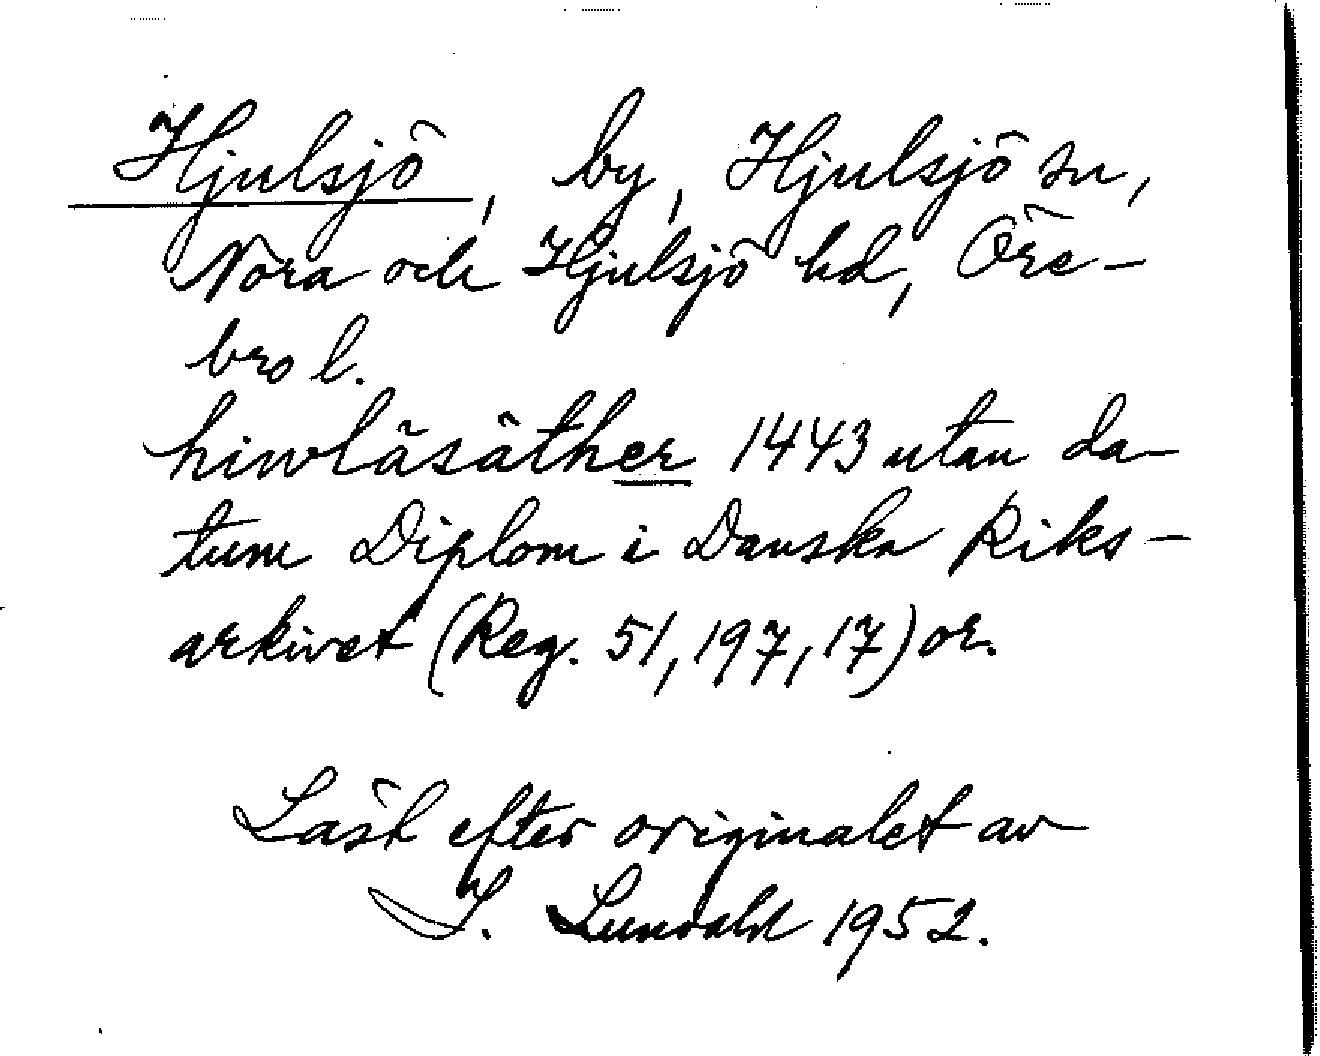 Hjulsjö, by, Hjulsjö sn,
Nora och Hjulsjö hd, Öre-
bro l.
hiwläsäther 1443 utan da-
tum Diplom i Danska Riks-
arkivet (Reg. 51, 197, 17) or.
Läst efter originalet av
I. Lundahl 1952.